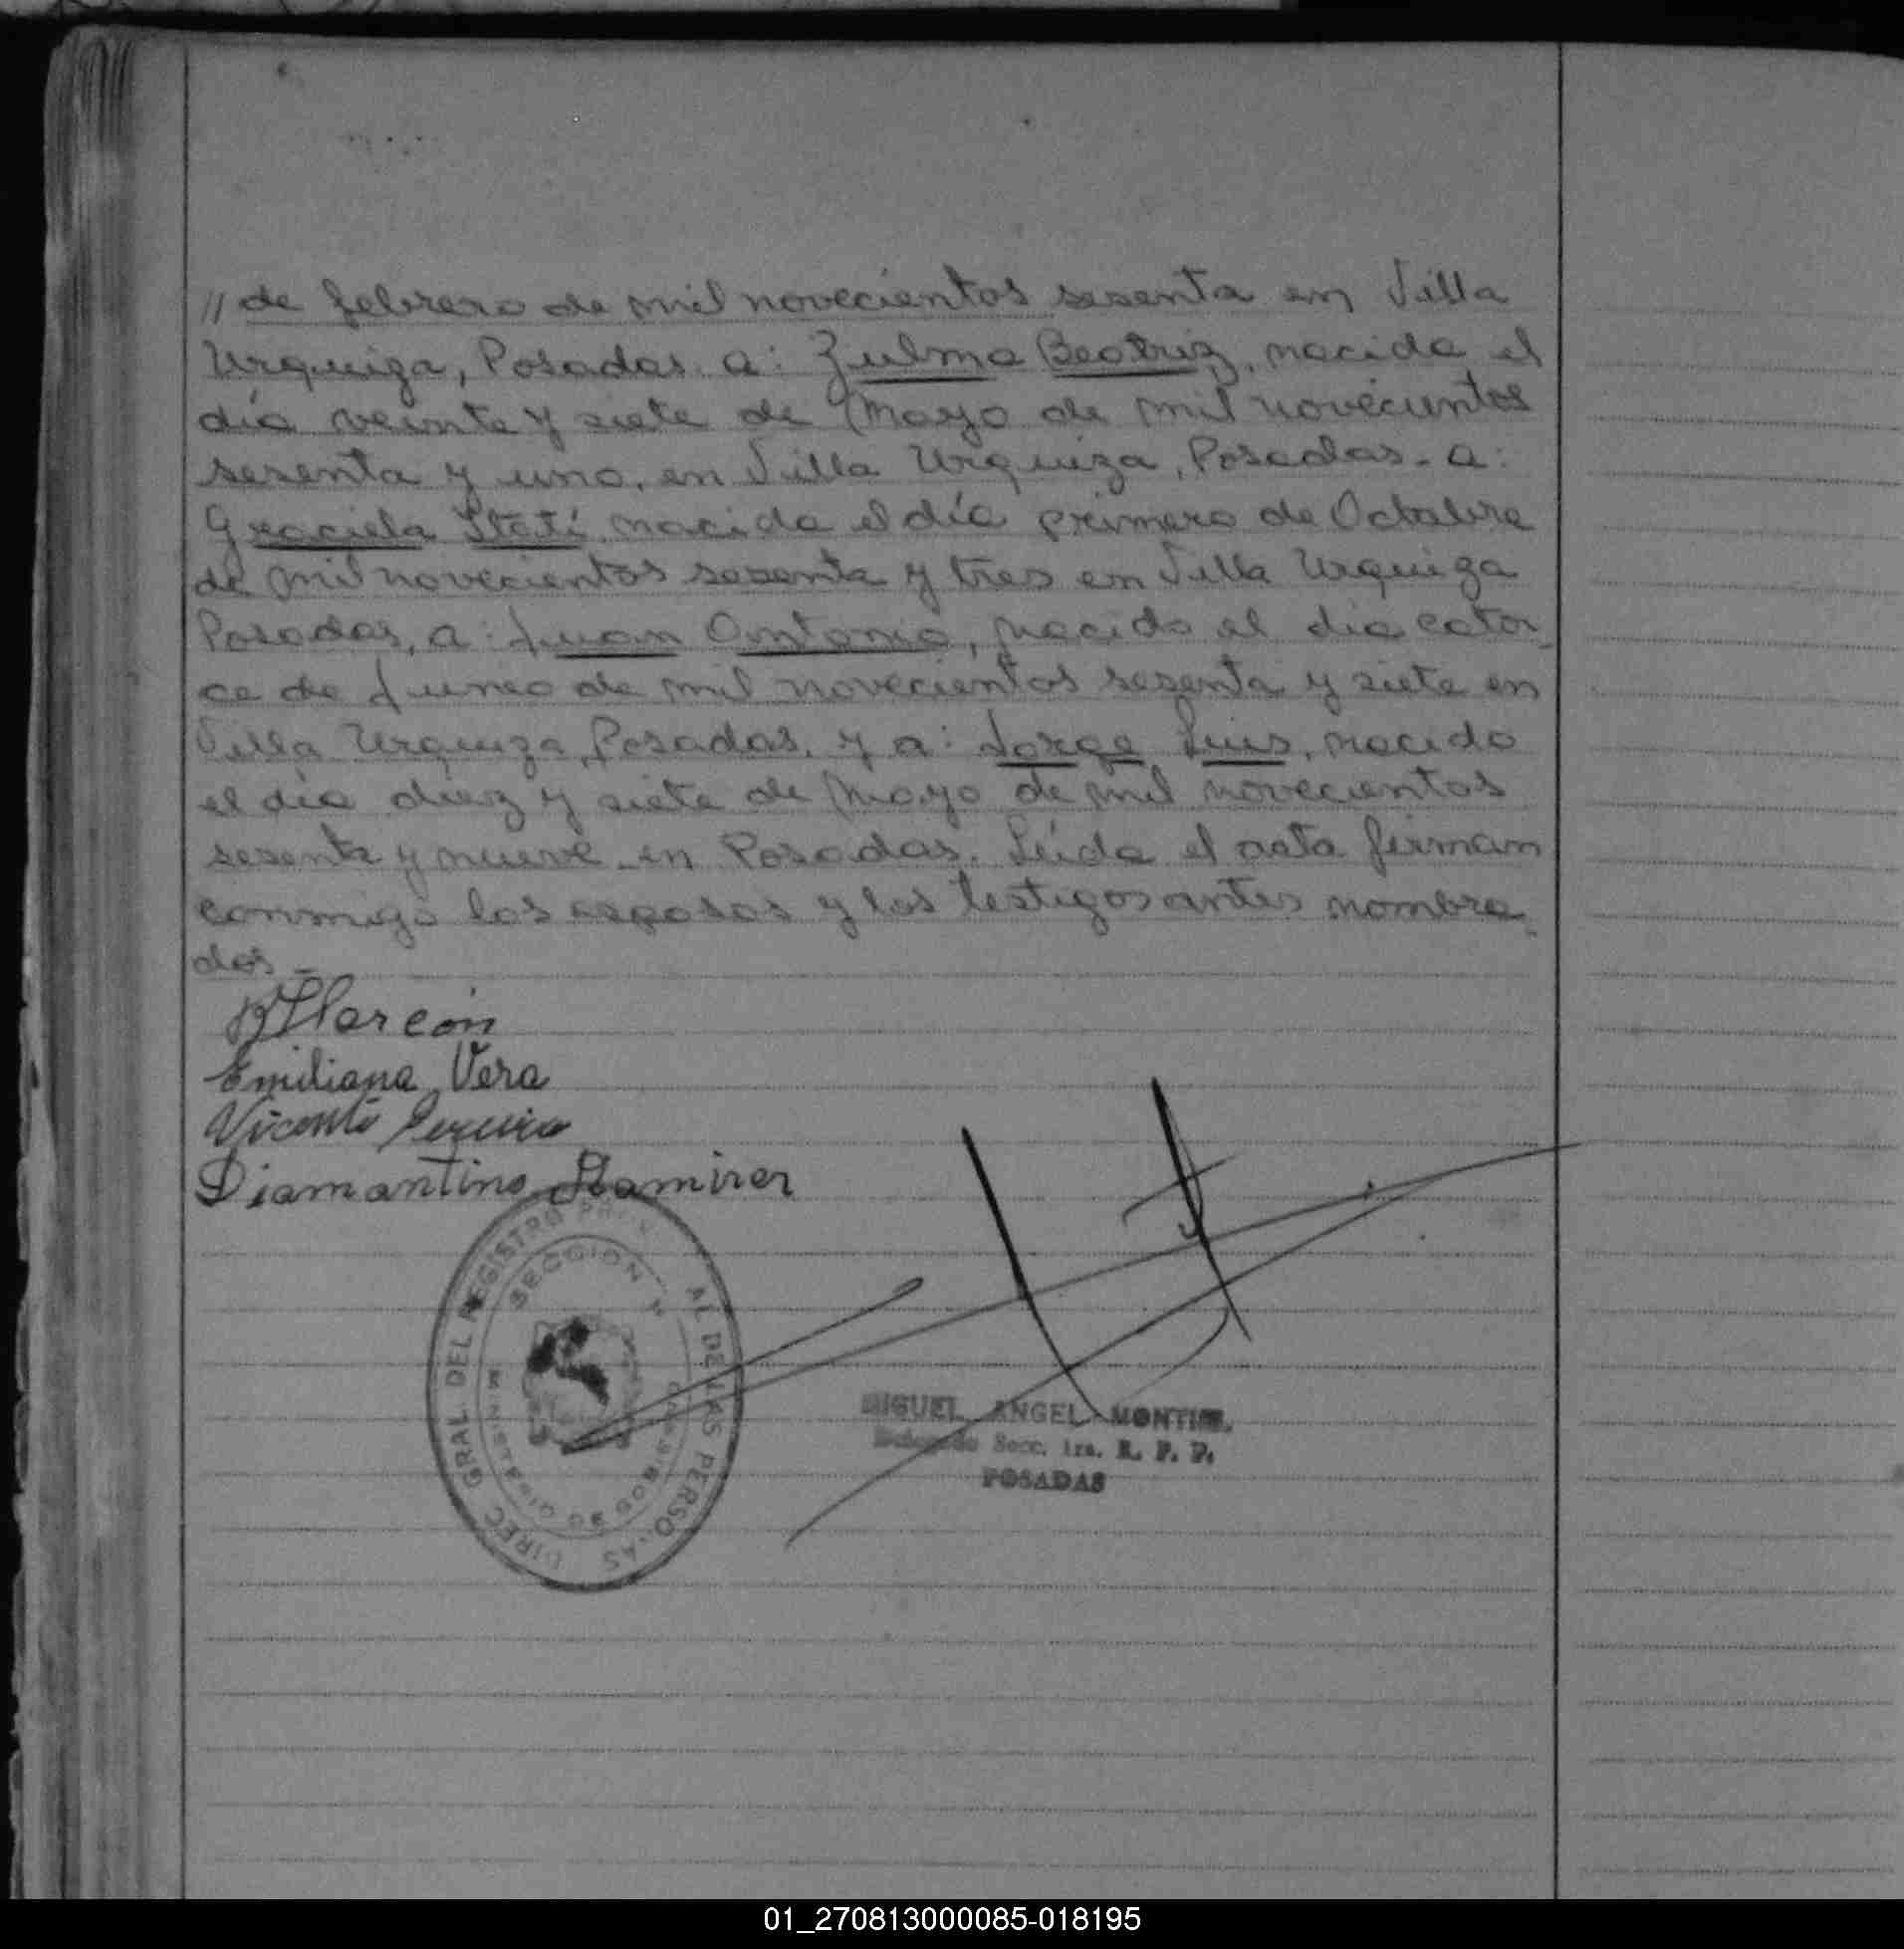 // de febrero de mil novecientos sesenta en Villa
Urquiza, Posadas. a: Zulma Beatriz, nacida el
día veinte y siete de Mayo de mil novecientos
sesenta y uno, en Villa Urquiza, Posadas. a:
Graciela Itatí, nacida el día primero de Octubre
de mil novecientos sesenta y tres en Villa Urquiza
Posadas, a: Juan Antonio, nacido el dia cator
ce de Junio de mil novecientos sesenta y siete en
Villa Urquiza, Posadas, y a: Jorge Luis, nacido
el día diez y siete de Mayo de mil novecientos
sesenta y nueve en Posadas. Leída el acta firman
conmigo los esposos y los testigos antes nombra
dos.-
Emiliana Vera
Vicente Pereira
Diamantino Ramirez
DIREC GRAL. DEL REGISTRO AL DE LAS PERSONAS
SECCION
MIGUEL ANGEL
Delegado Secc. 1ra. R. P. P.
POSADAS
01_270813000085-018195